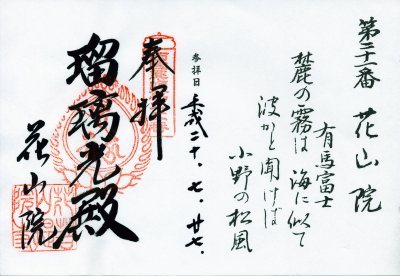 第二十一番 花山院
有馬富士
麓の霧は 海に似て
波かと聞けば
小野の松風
参拝日 平成二十、七、廿七、
奉拝
瑠璃光殿
花山院